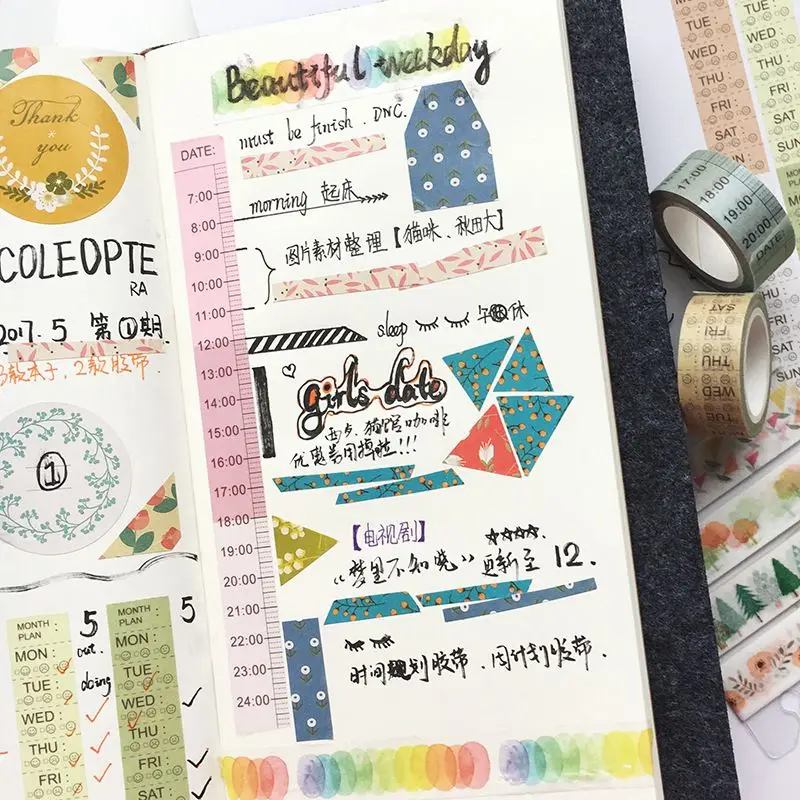 Thank
you
COLEOPTE
RA
2017.5 第①期
3款本子，2款胶带
1
MONTH PLAN 5 out.
MON:
TUE: doing
WED:
THU:
FRI
MONTH PLAN 5
MON:
TUE:
WED:
THU:
FRI
SAT:
Beautiful weekday
must be finish. DNC.
DATE:
7:00
morning 起床
8:00
9:00
图片素材整理【猫咪、秋田犬】
10:00
11:00
sleep 午休
12:00
13:00
girl's date
14:00
西点、猫馆咖啡
15:00
优惠券用掉啦!!!
16:00
17:00
18:00
【电视剧】
19:00
《梦里不知晓》更新至 12.
20:00
21:00
22:00
23:00
时间规划胶带、周计划胶带.
24:00
TUE:
WED:
THU:
FRI:
SAT:
SUN:
TUE
WED:
THU:
FRI
SAT:
SUN:
17:00
18:00
19:00
20:00
DATE:
FRI
THU
WED
TUE